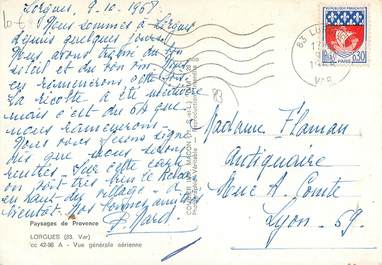 Lorgues, 9.10.1967
10 €
Nous sommes à Lorgues
depuis quelques jours.
Nous avons trouvé du bon
soleil et du bon vin. Nous
en ramènerons cette fois.
La récolte a été
mais c'est du 67 que
nous ramènerons.
Nous vous ferons signe
dès que nous serons
rentrés. Sur cette carte
on voit très bien le
en haut du village. A
bientôt. Nos bonnes amitiés
Paysages de Provence
LORGUES (83. Var)
cc 42-98 A - Vue générale aérienne
83
83 LORGUES
VAR
REPUBLIQUE FRANÇAISE
POSTES
0,30
PARIS
Madame Flaman
Antiquaire
Rue A. Comte
Lyon. 69.